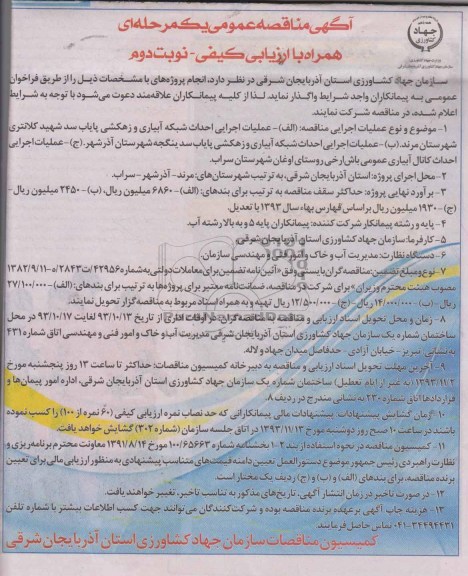 آگهی مناقصه عمومی یک مرحله‌ای
همراه با ارزیابی کیفی - نوبت دوم
جهاد کشاورزی
سازمان جهاد کشاورزی استان آذربایجان شرقی در نظر دارد، انجام پروژه‌های با مشخصات ذیل را از طریق فراخوان
عمومی به پیمانکاران واجد شرایط واگذار نماید. لذا از کلیه پیمانکاران علاقه‌مند دعوت می‌شود با توجه به شرایط
اعلام شده، در مناقصه شرکت نمایند.
۱- موضوع و نوع عملیات اجرایی مناقصه: (الف)- عملیات اجرایی احداث شبکه آبیاری و زهکشی پایاب سد شهید کلانتری
شهرستان مرند. (ب)- عملیات اجرایی احداث شبکه آبیاری و زهکشی پایاب سد ینگجه شهرستان آذرشهر. (ج)- عملیات اجرایی
احداث کانال آبیاری عمومی باش‌ارخی روستای اوغان شهرستان سراب.
۲- محل اجرای پروژه: استان آذربایجان شرقی، به ترتیب شهرستان‌های: مرند - آذرشهر - سراب.
۳- برآورد نهایی پروژه: حداکثر سقف مناقصه به ترتیب برای بندهای: (الف)- ۶۸۶۰ میلیون ریال، (ب)- ۲۴۵۰ میلیون ریال-
(ج)- ۱۹۳۰ میلیون ریال براساس فهارس بهاء سال ۱۳۹۳ با تعدیل.
۴- پایه و رشته پیمانکار شرکت کننده: پیمانکاران پایه ۵ و به بالا رشته آب.
۵- کارفرما: سازمان جهاد کشاورزی استان آذربایجان شرقی.
۶- دستگاه نظارت: مدیریت آب و خاک و امور فنی و مهندسی سازمان.
۷- نوع و مبلغ تضمین: مناقصه گران بایستی وفق «آئین نامه تضمین برای معاملات دولتی به شماره ۴۲۹۵۶/ت۲۸۴۳۳ه-۱۳۸۲/۹/۱۱
مصوب هیئت محترم وزیران» برای شرکت در مناقصه، ضمانت‌نامه معتبر برای پروژه‌ها به ترتیب برای بندهای: (الف)- ۲۷/۱۰۰/۰۰۰
ریال - (ب)- ۱۴/۰۰۰/۰۰۰ ریال - (ج)- ۱۲/۵۰۰/۰۰۰ ریال تهیه و به همراه اسناد مربوط به مناقصه‌گزار تحویل نمایند.
۸- زمان و محل تحویل اسناد ارزیابی و مناقصه به مناقصه‌گران: در اوقات اداری از تاریخ ۹۳/۱۰/۱۳ لغایت ۹۳/۱۰/۱۷ در محل
ساختمان شماره یک سازمان جهاد کشاورزی استان آذربایجان شرقی مدیریت آب و خاک و امور فنی و مهندسی اتاق شماره ۴۳۱
به نشانی: تبریز - خیابان آزادی - حدفاصل میدان جهاد و لاله.
۹- آخرین مهلت تحویل اسناد ارزیابی و مناقصه به دبیرخانه کمیسیون مناقصات: حداکثر تا ساعت ۱۳ روز پنجشنبه مورخ
۱۳۹۳/۱۱/۲ (به غیر از ایام تعطیل) ساختمان شماره یک سازمان جهاد کشاورزی استان آذربایجان شرقی، اداره امور پیمان‌ها و
قراردادها اتاق شماره ۲۳۰ به نشانی مندرج در ردیف ۸.
۱۰- زمان گشایش پیشنهادات: پیشنهادات مالی پیمانکارانی که حد نصاب نمره ارزیابی کیفی (۶۰ نمره از ۱۰۰) را کسب نموده
باشند در ساعت ۱۰ صبح روز دوشنبه مورخ ۱۳۹۳/۱۱/۱۳ در اتاق جلسه سازمان (شماره ۳۰۲) گشایش خواهد یافت.
۱۱- کمیسیون مناقصه در نحوه استفاده از بند ۲-۱۰ بخشنامه شماره ۱۰۰/۶۵۶۶۳ مورخ ۱۳۹۱/۸/۱۴ معاونت محترم برنامه‌ریزی و
نظارت راهبردی رئیس جمهور موضوع دستورالعمل تعیین دامنه قیمت‌های متناسب پیشنهادی به منظور ارزیابی مالی برای تعیین
برنده مناقصه، برای بندهای (الف) و (ب) و (ج) ردیف یک مختار است.
۱۲- در صورت تاخیر در زمان انتشار آگهی، تاریخ‌های مذکور به تناسب تاخیر، تغییر خواهند یافت.
۱۳- هزینه چاپ آگهی بر عهده برنده مناقصه بوده و شرکت‌کنندگان می‌توانند جهت کسب اطلاعات بیشتر با شماره تلفن
۰۴۱-۳۴۴۹۴۴۳۱ تماس حاصل فرمایند.
کمیسیون مناقصات سازمان جهاد کشاورزی استان آذربایجان شرقی